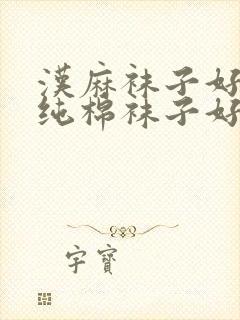 漢麻袜子好
纯棉袜子好
字寶